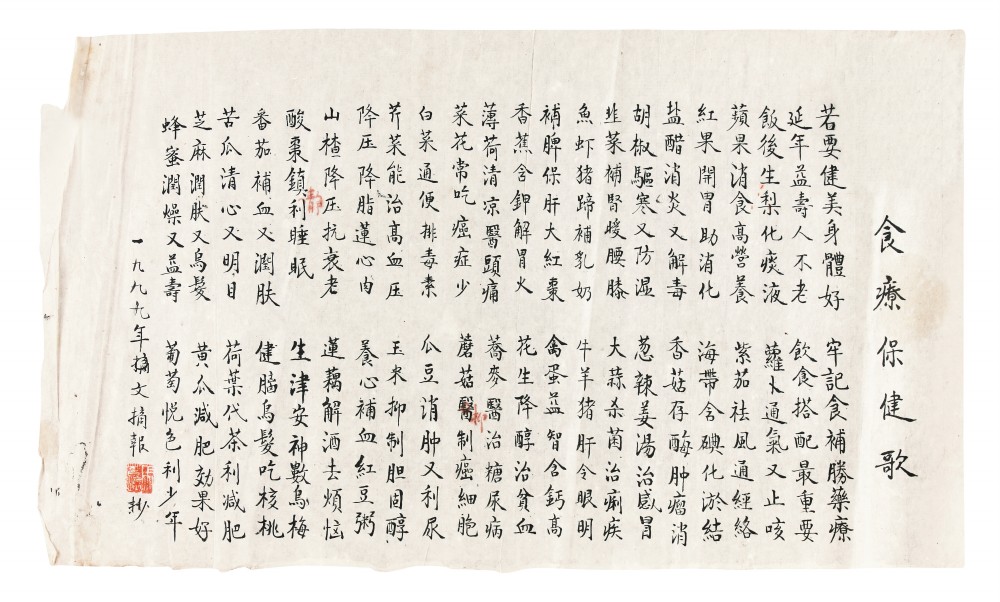 食療保健歌
若要健美身體好 牢記食補勝藥療
延年益壽人不老 飲食搭配最重要
飯後生梨化痰液 蘿卜通氣又止咳
蘋果消食高營養 紫茄祛風通經絡
紅果開胃助消化 海帶含碘化淤結
盐醋消炎又解毒 香菇存酶肿瘤消
胡椒驅寒又防湿 葱辣姜湯治感冒
韭菜補腎暖腰膝 大蒜杀菌治痢疾
魚虾猪蹄補乳奶 牛羊猪肝令眼明
補脾保肝大紅棗 禽蛋益智含鈣高
香蕉含鉀解胃火 花生降醇治貧血
薄荷清凉醫頭痛 蕎麥醫治糖尿病
菜花常吃癌症少 蘑菇醫制癌細胞
白菜通便排毒素 瓜豆消肿又利尿
芥菜能治高血压 玉米抑制胆固醇
降压降脂蓮心肉 養心補血紅豆粥
山楂降压抗衰老 蓮藕解酒去煩惱
酸棗鎮利睡眠 生津安神數烏梅
番茄補血又潤肤 健腦烏髮吃核桃
苦瓜清心又明目 荷葉代茶利減肥
芝麻潤肤又烏髮 黄瓜減肥効果好
蜂蜜潤燥又益壽 葡萄悅色利少年
一九九九年摘文摘報 抄